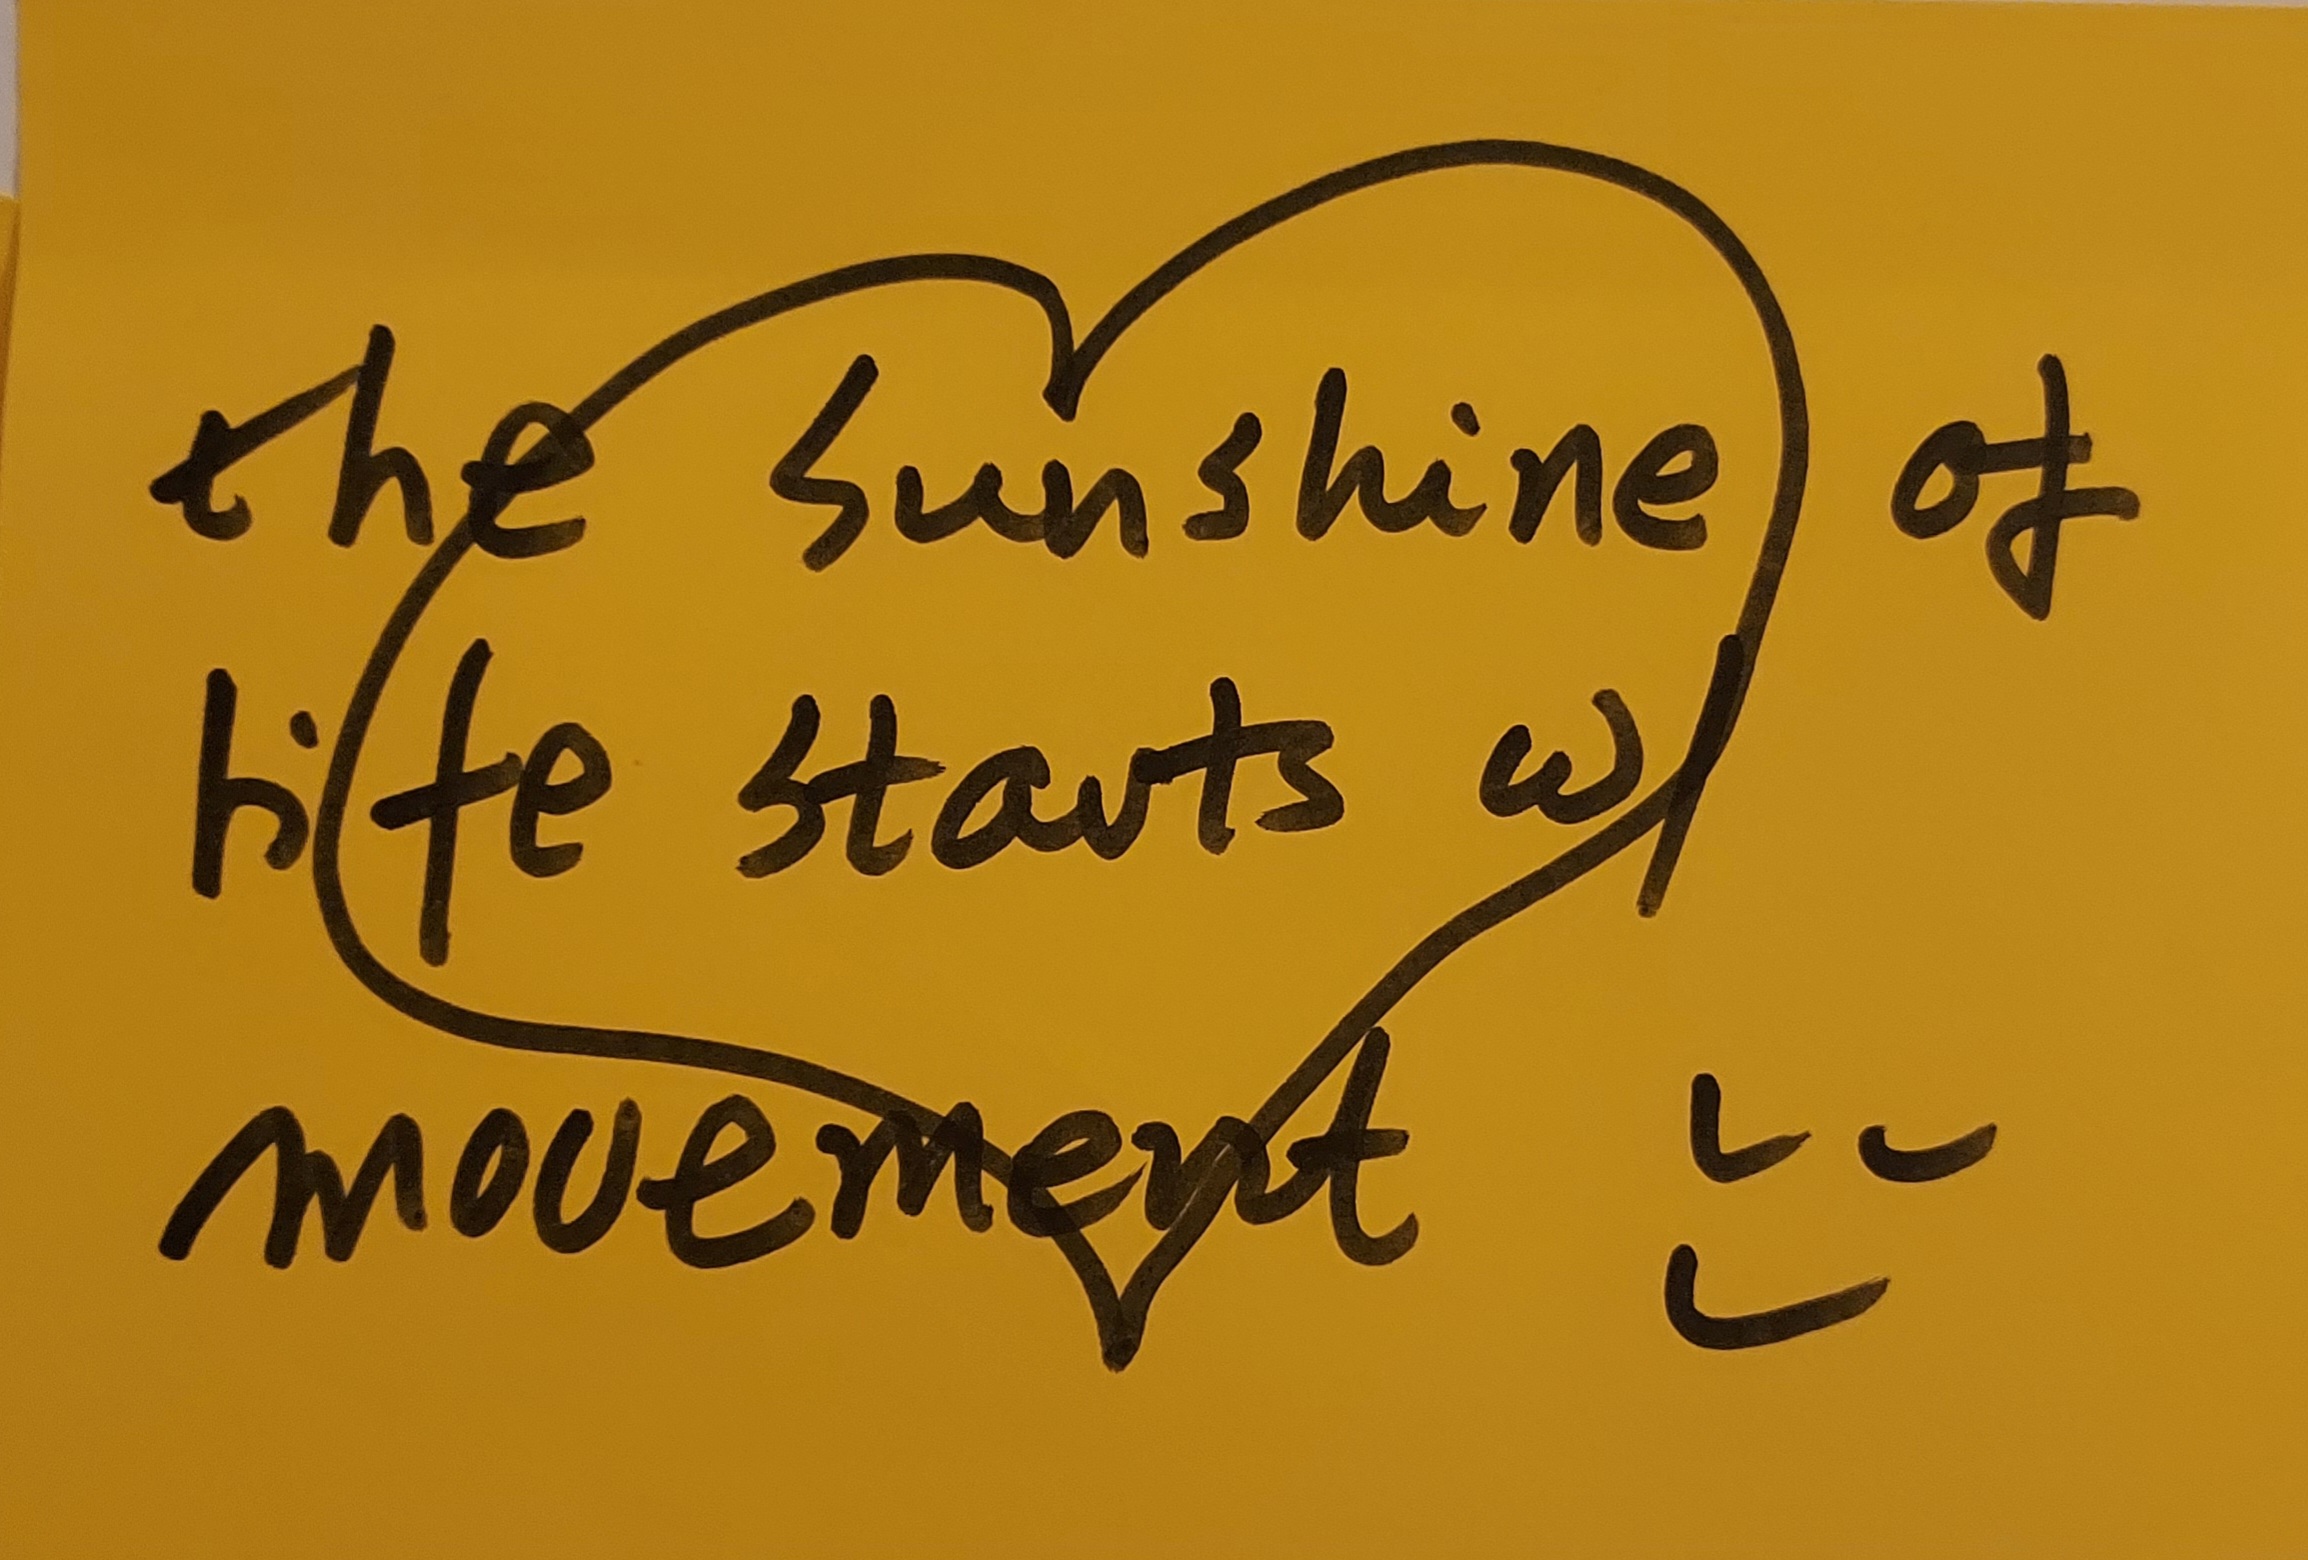 the sunshine of
life starts w/
movement